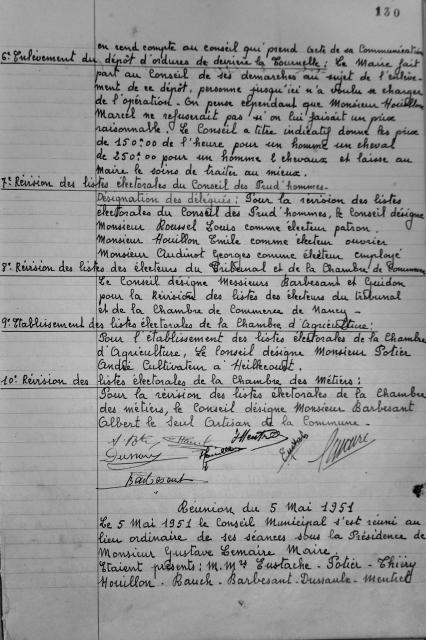 130
en rend compte au conseil qui prend acte de sa communication
6° Enlèvement du dépôt d'ordures de derrière la Tournelle : Le Maire fait
part au Conseil de ses demarches au sujet de l'enlève-
ment de ce dépôt, personne jusqu'ici n'a voulu se charger
de l'opération. On pense cependant que Monsieur Houillon
Marcel ne refuserait pas si on lui faisait un prix
raisonnable. Le Conseil a titre indicatif donne les prix
de 150.00 de l'heure pour un homme un cheval
de 250.00 pour un homme 2 chevaux et laisse au
Maire le soins de traiter au mieux.
7° Révision des listes électorales du Conseil des Prud'hommes.
Désignation des délégués : Pour la révision des listes
électorales du Conseil des Prud'hommes, le Conseil désigne
Monsieur Roussel Louis comme électeur patron.
Monsieur Houillon Emile comme électeur ouvrier
Monsieur Audinot Georges comme électeur employé
8° Révision des listes des électeurs du Tribunal et de la Chambre de Commerce
Le Conseil désigne Messieurs Barbesant et Guidon
pour la Révision des listes des électeurs du tribunal
et de la Chambre de Commerce de Nancy -
9° Etablissement des listes électorales de la Chambre d'Agriculture :
Pour l'établissement des listes électorales de la Chambre
d'Agriculture, Le Conseil désigne Monsieur Potier
André Cultivateur à Heillecourt.
10° Révision des listes électorales de la Chambre des Métiers :
Pour la révision des listes électorales de la Chambre
des métiers, le Conseil désigne Monsieur Barbesant
Albert le Seul Artisan de la Commune -
Eustache
Barbesant
Réunion du 5 Mai 1951
Le 5 Mai 1951 le Conseil Municipal s'est réuni au
lieu ordinaire de ses séances sous la Présidence de
Monsieur Gustave Lemaire Maire.
Etaient présents : M.Mrs Eustache - Potier - Thiéry
Houillon - Rauch - Barbesant - Dussaulx - Mentrel